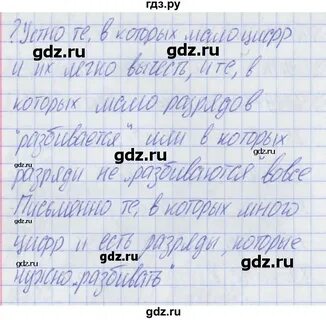 гдз.ру
? Устно те, в которых мало цифр
и их легко вычесть, и те, в
которых мало разрядов
"разбивается" или в которых
разряды не разбиваются вовсе
Письменно те, в которых много
цифр и есть разряды, которые
нужно "разбивать"
gdz.ru gdz.ru
gdz.ru gdz.ru
gdz.ru gdz.ru
gdz.ru gdz.ru